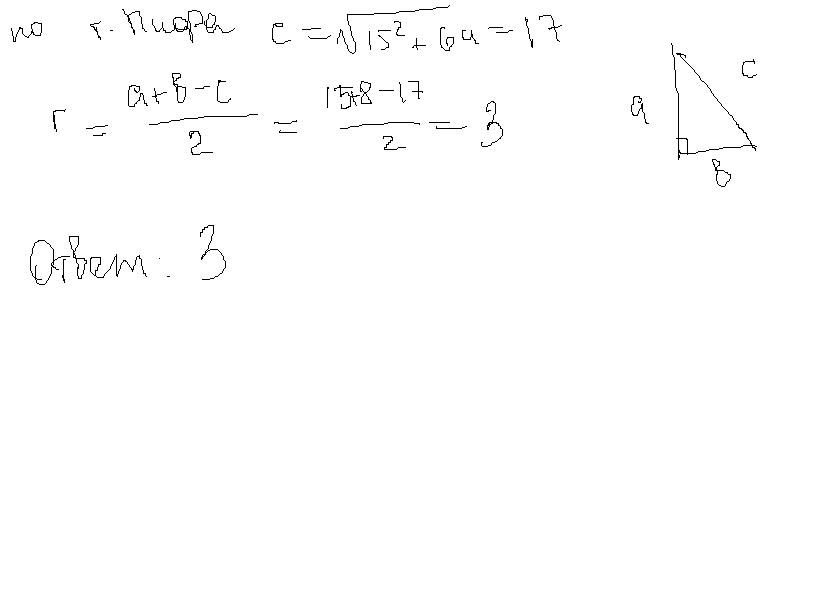 по т. Пифора c = √15² + 64 = 17
r = a+b-c / 2 = 15+8-17 / 2 = 3
a
c
b
Ответ: 3